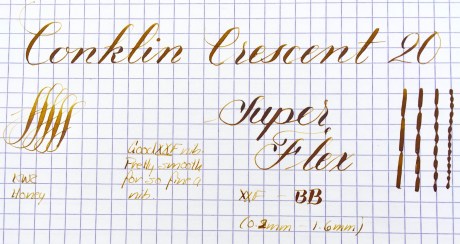 Conklin Crescent 20
Super
Flex
Good XXF nib
Pretty smooth
for so fine a
nib
KWZ
Honey
XXF BB
(0.2mm - 1.6mm)